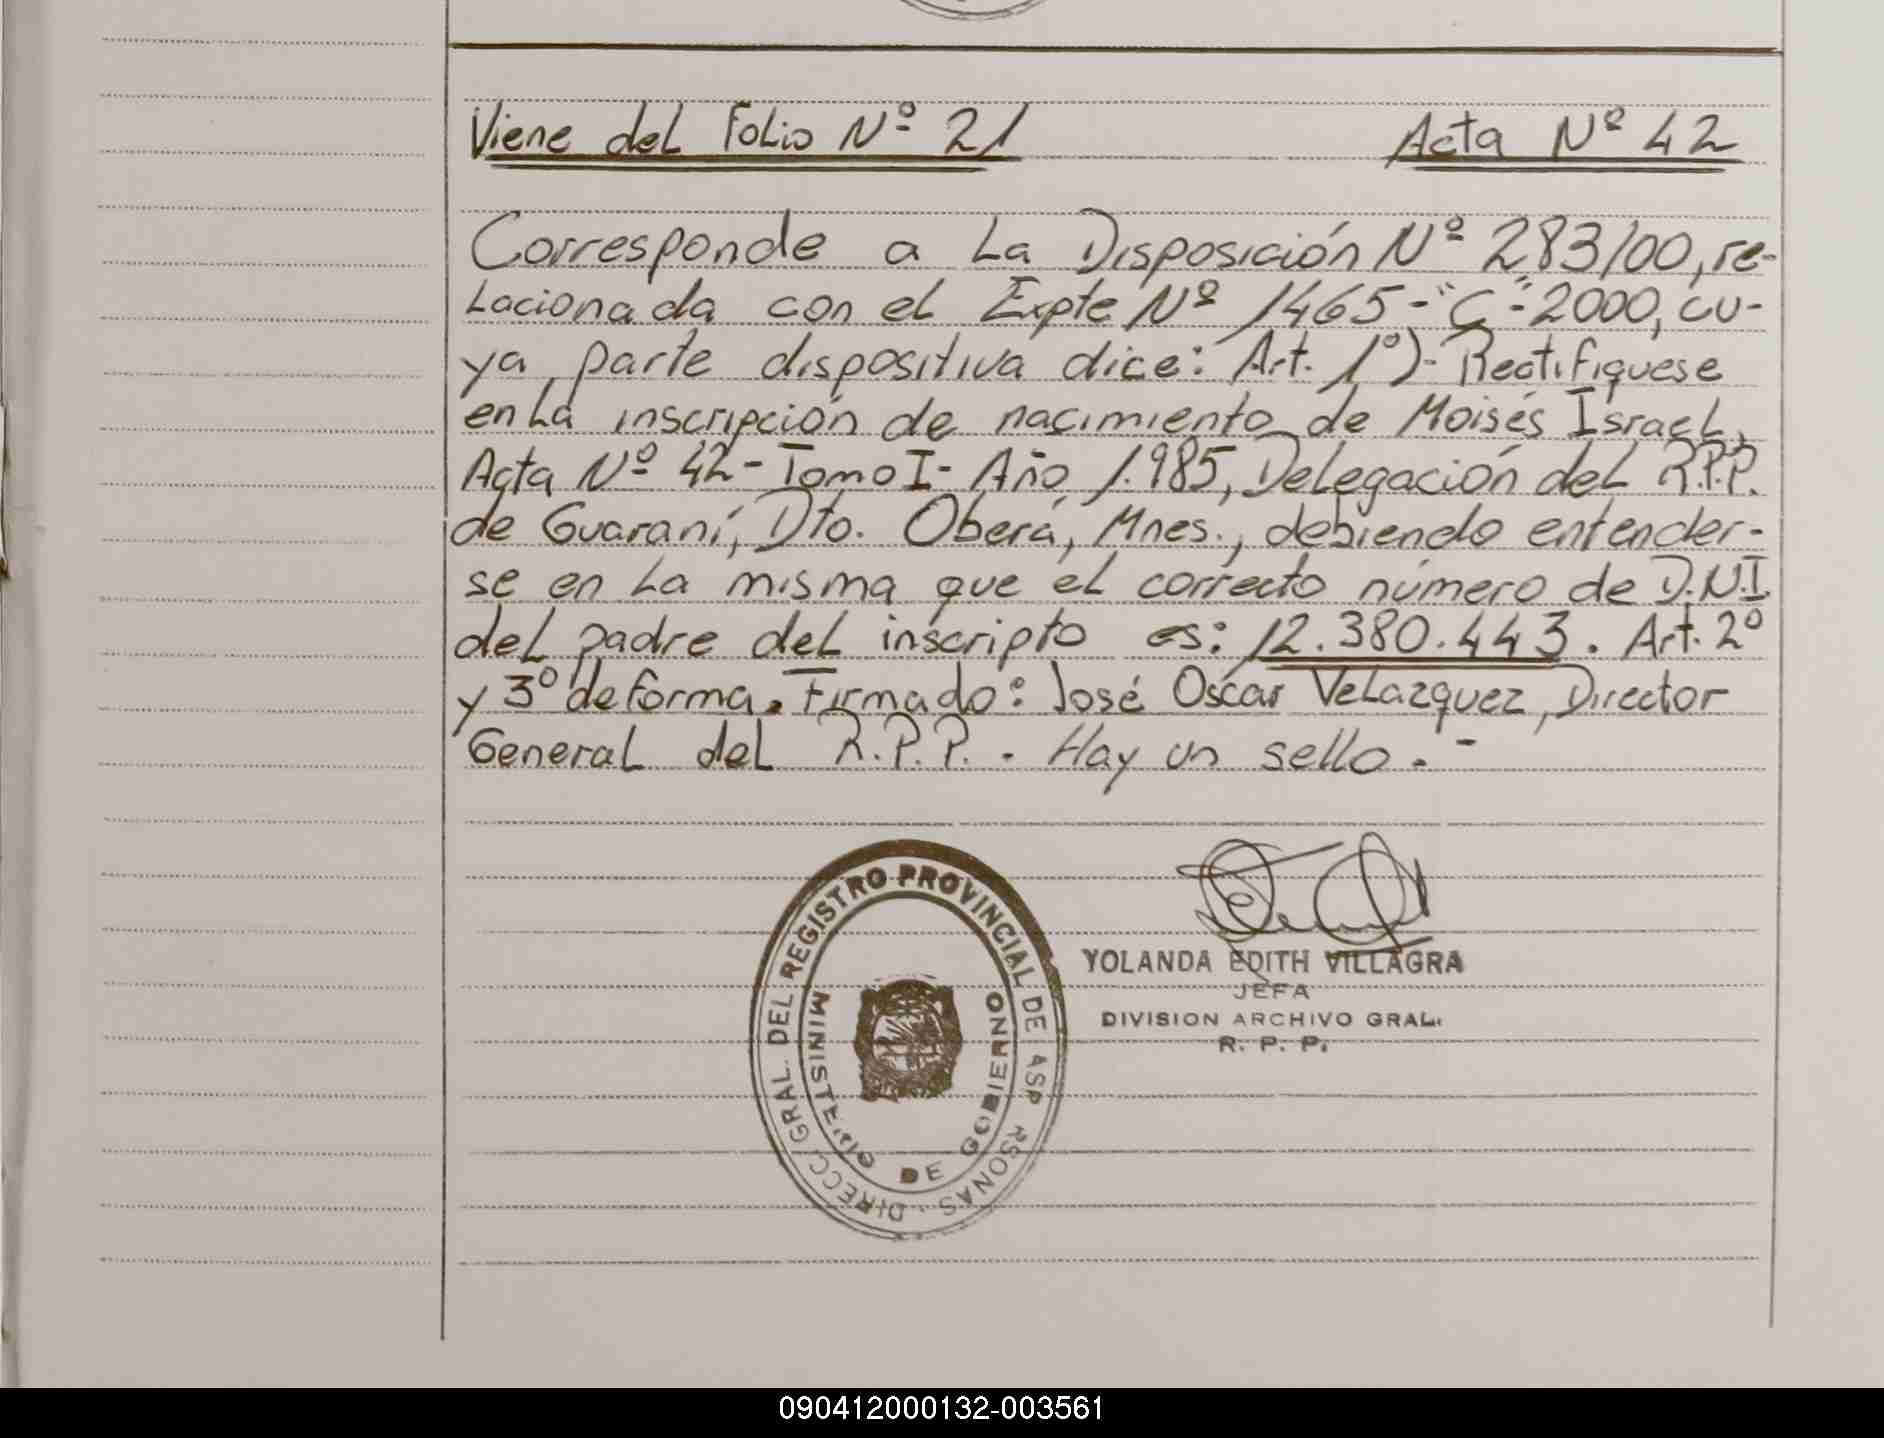 Viene del Folio Nº 21 Acta Nº 42
Corresponde a La Disposición Nº 283/00, re-
Lacionada con el Expte Nº 1465-"C"-2000, cu-
ya parte dispositiva dice: Art. 1º)- Rectifiquese
en La inscripción de nacimiento de Moisés Israel,
Acta Nº 42- Tomo I- Año 1.985, Delegación del R.P.P.
de Guaraní, Dto. Oberá, Mnes., debiendo entender-
se en La misma que el correcto número de D.N.I.
del padre del inscripto es: 12.380.443. Art. 2º
y 3º de forma. Firmado: José Oscar Velazquez, Director
General del R.P.P. - Hay un sello. -
DIRECC. GRAL. DEL REGISTRO PROVINCIAL DE PERSONAS
MINISTERIO DE GOBIERNO
YOLANDA EDITH VILLAGRA
JEFA
DIVISION ARCHIVO GRAL.
R. P. P.
090412000132-003561